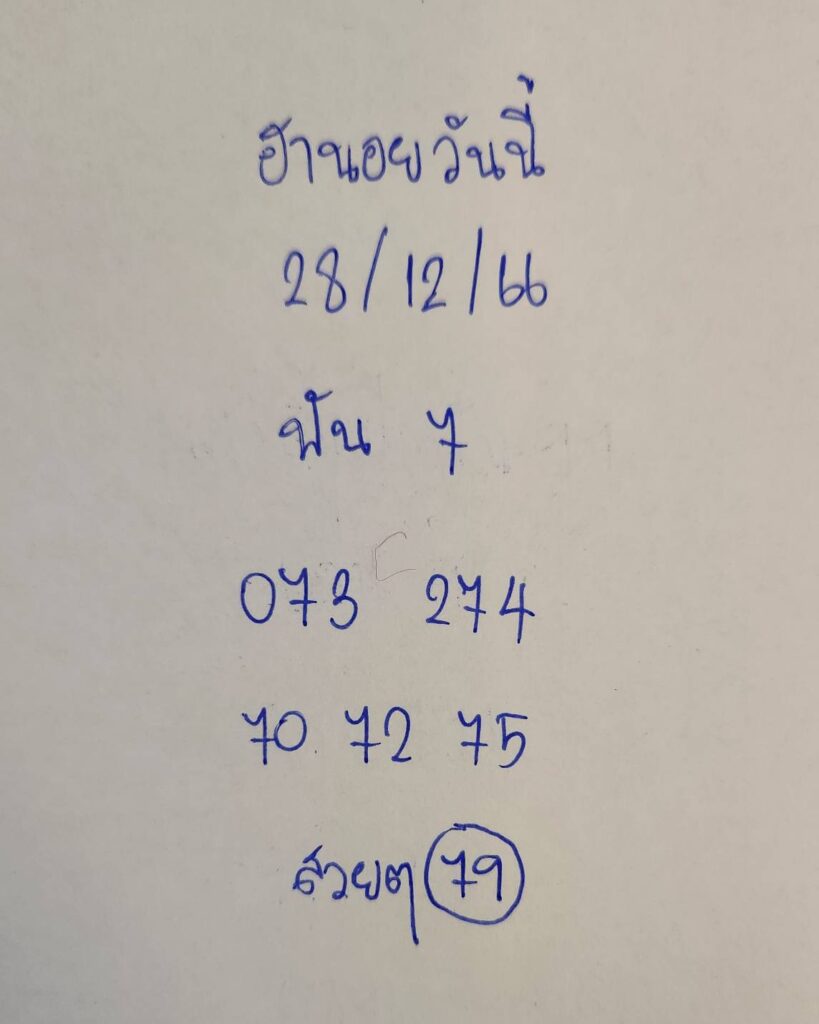 ฮานอยวันนี้
28/12/66
ฟัน 7
073 274
70 72 75
สวยๆ 79